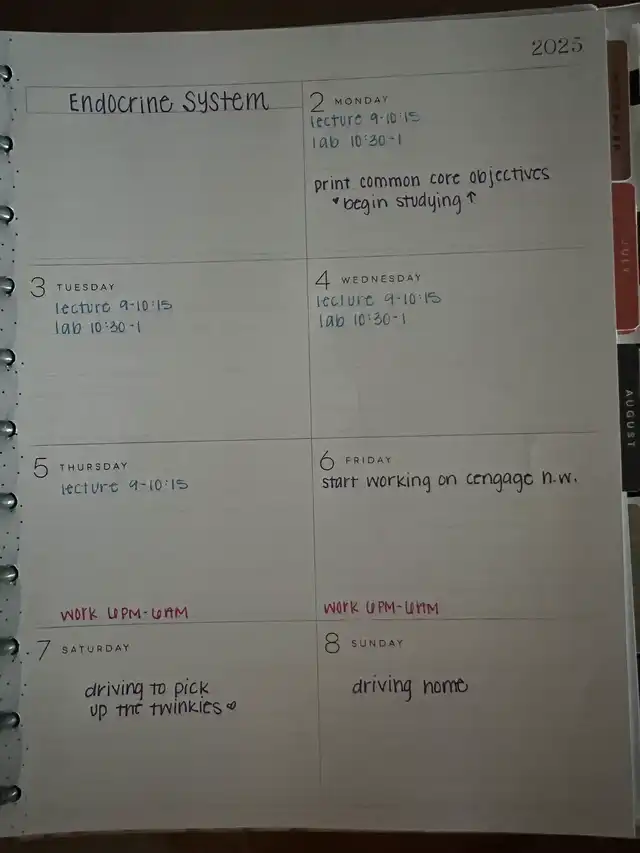 2025
Endocrine System
2 MONDAY
lecture 9-10:15
lab 10:30-1
print common core objectives
♥begin studying↑
3 TUESDAY
lecture 9-10:15
lab 10:30-1
4 WEDNESDAY
lecture 9-10:15
lab 10:30-1
5 THURSDAY
lecture 9-10:15
work 6PM-6AM
6 FRIDAY
start working on cengage h.w.
work 6PM-6AM
7 SATURDAY
driving to pick
up the twinkies♡
8 SUNDAY
driving home
JULY
AUGUST